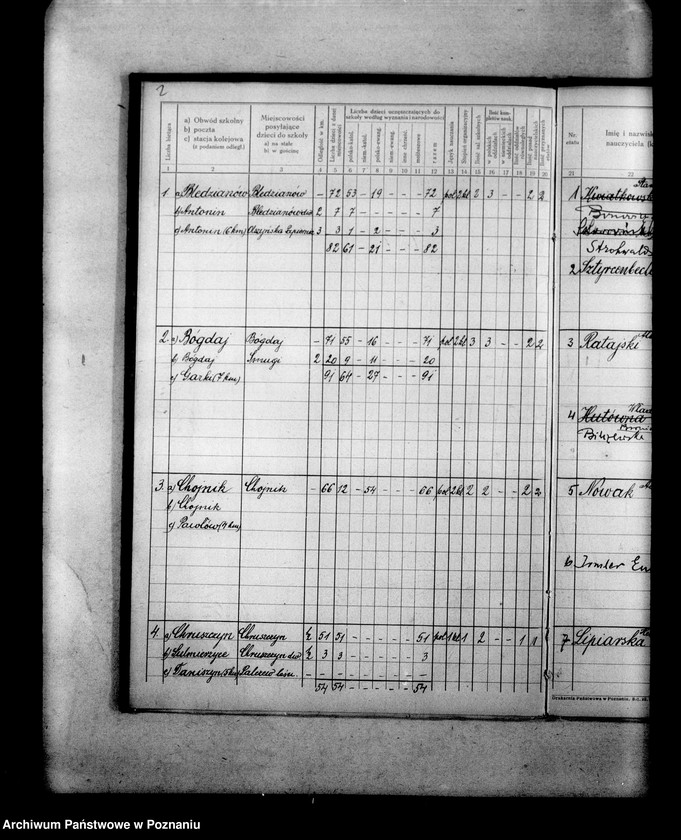 2
Liczba bieżąca
a) Obwód szkolny
b) poczta
c) stacja kolejowa
(z podaniem odległ.)
Miejscowości
posyłające
dzieci do szkoły
a) na stałe
b) w gościnę
Odległość w km.
Liczba dzieci z danej miejscowości
Liczba dzieci uczęszczających do
szkoły według wyznania i narodowości
polsko-katol.
niem.-katol.
polsko-ewang.
niem.-ewang.
inne chrześć.
mojżeszowe
razem
Język nauczania
Stopień organizacyjny
Nr. etatu
Imię i nazwisko
nauczyciela (k
1 2 3 4 5 6 7 8 9 10 11 12 13 14 15 16 17 18 19 20 21 22
1 a) Bledzianów Bledzianów - 72 53 - 19 - - - 72 pol 2kl 2 3 - - 2 2
b) Antonin 2 7 7 - - - - - 7
c) Antonin (6 km) 3 3 1 - 2 - - - 3
82 61 - 21 - - - 82
1 Kwiatkowsk
Strohwald
2 Sztyrcenbech
2. a) Bógdaj Bógdaj - 71 55 - 16 - - - 71 pol 2kl 3 3 - - 2 2
b) Bógdaj Smugi 2 20 9 - 11 - - - 20
c) Garki (7 km) 91 64 - 27 - - - 91
3 Ratajski
4 Kutówna
3. a) Chojnik Chojnik - 66 12 - 54 - - - 66 pol 2kl 2 2 - - 2 2
b) Chojnik
c) Pawłów (4 km)
5 Nowak
6 Irmler
4. a) Chruszczyn Chruszczyn ½ 51 51 - - - - - - 51 pol 1kl 1 2 - - 1 1
b) Sulmierzyce Chruszczyn ½ 3 3 - - - - - - 3
c) Daniszyn
54 54 - - - - - - 54
7 Lipiarska
Drukarnia Państwowa w Poznaniu.
Archiwum Państwowe w Poznaniu